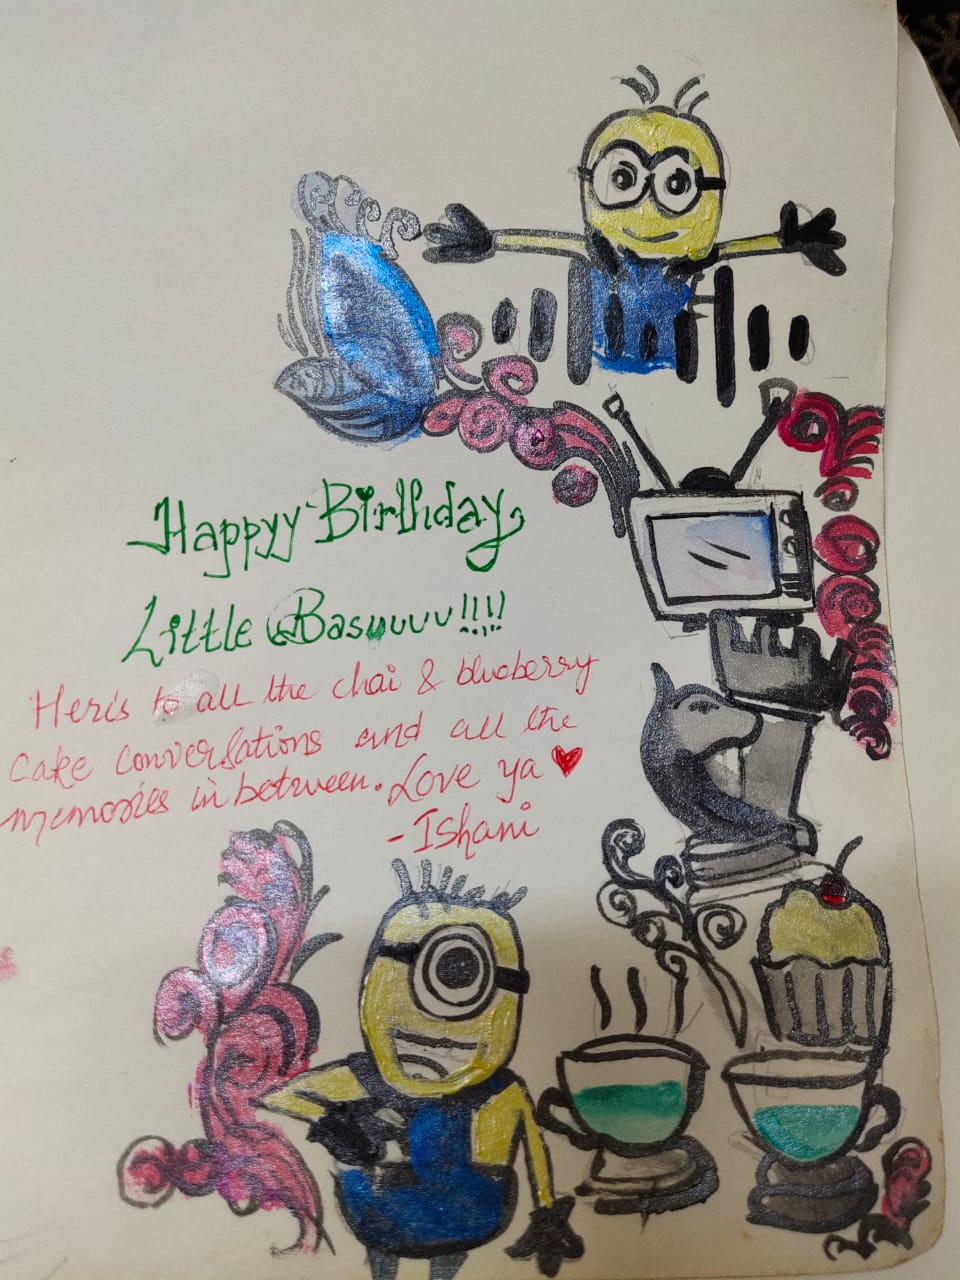 Happyy Birthday,
Little Basuuuu!!!!
Here's to all the chai & blueberry
cake conversations and all the
memories in between. Love ya ♥
-Ishani